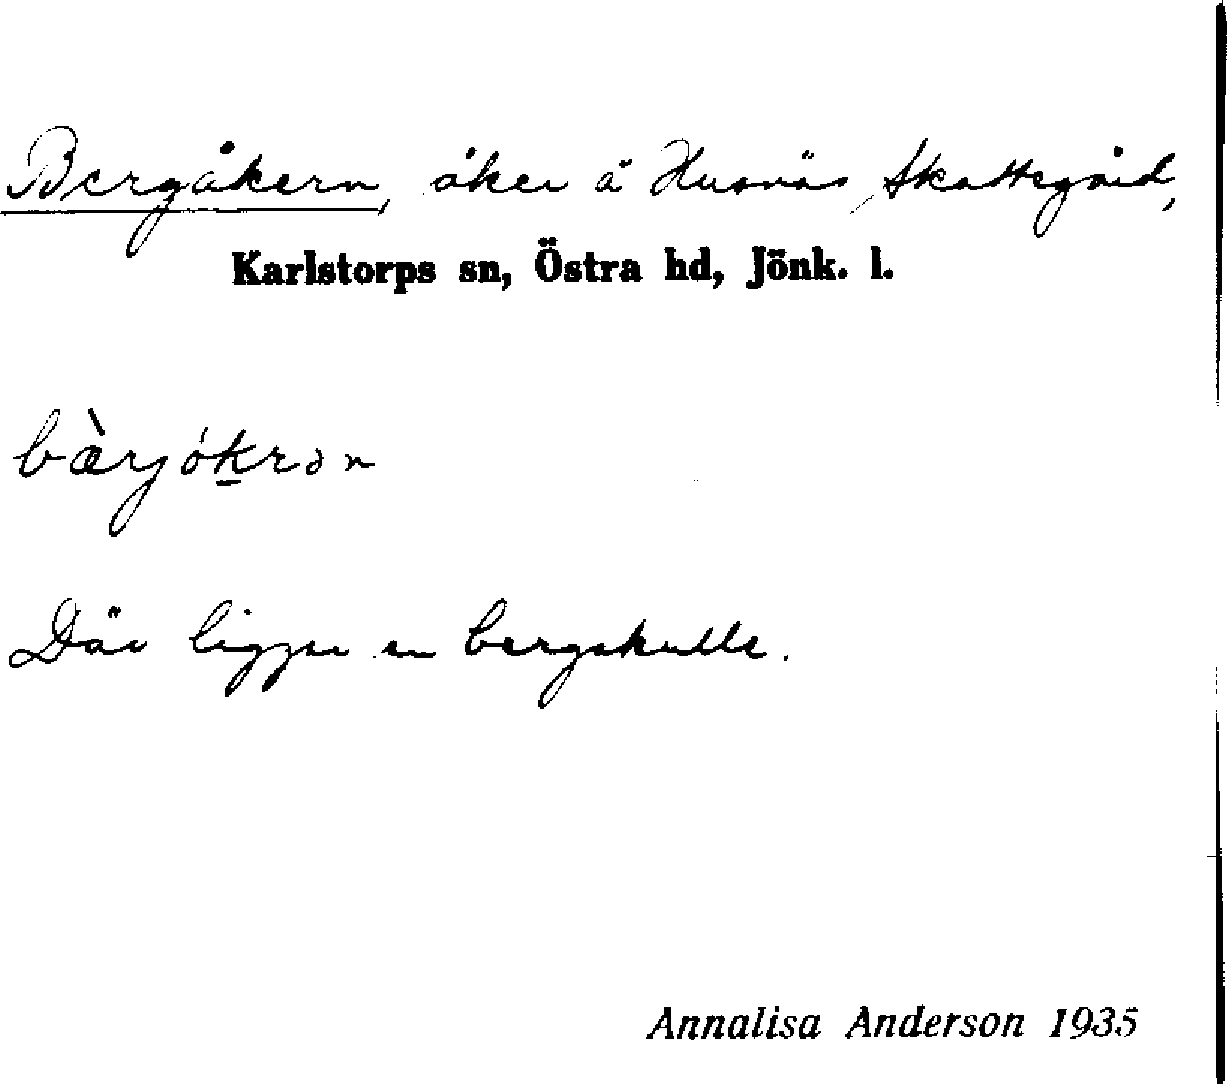 Bergåkern, åker å Husnäs Skattegård,
Karlstorps sn, Östra hd, Jönk. l.
bæ̀rjókrən
Där ligger en bergskulle.
Annalisa Anderson 1935